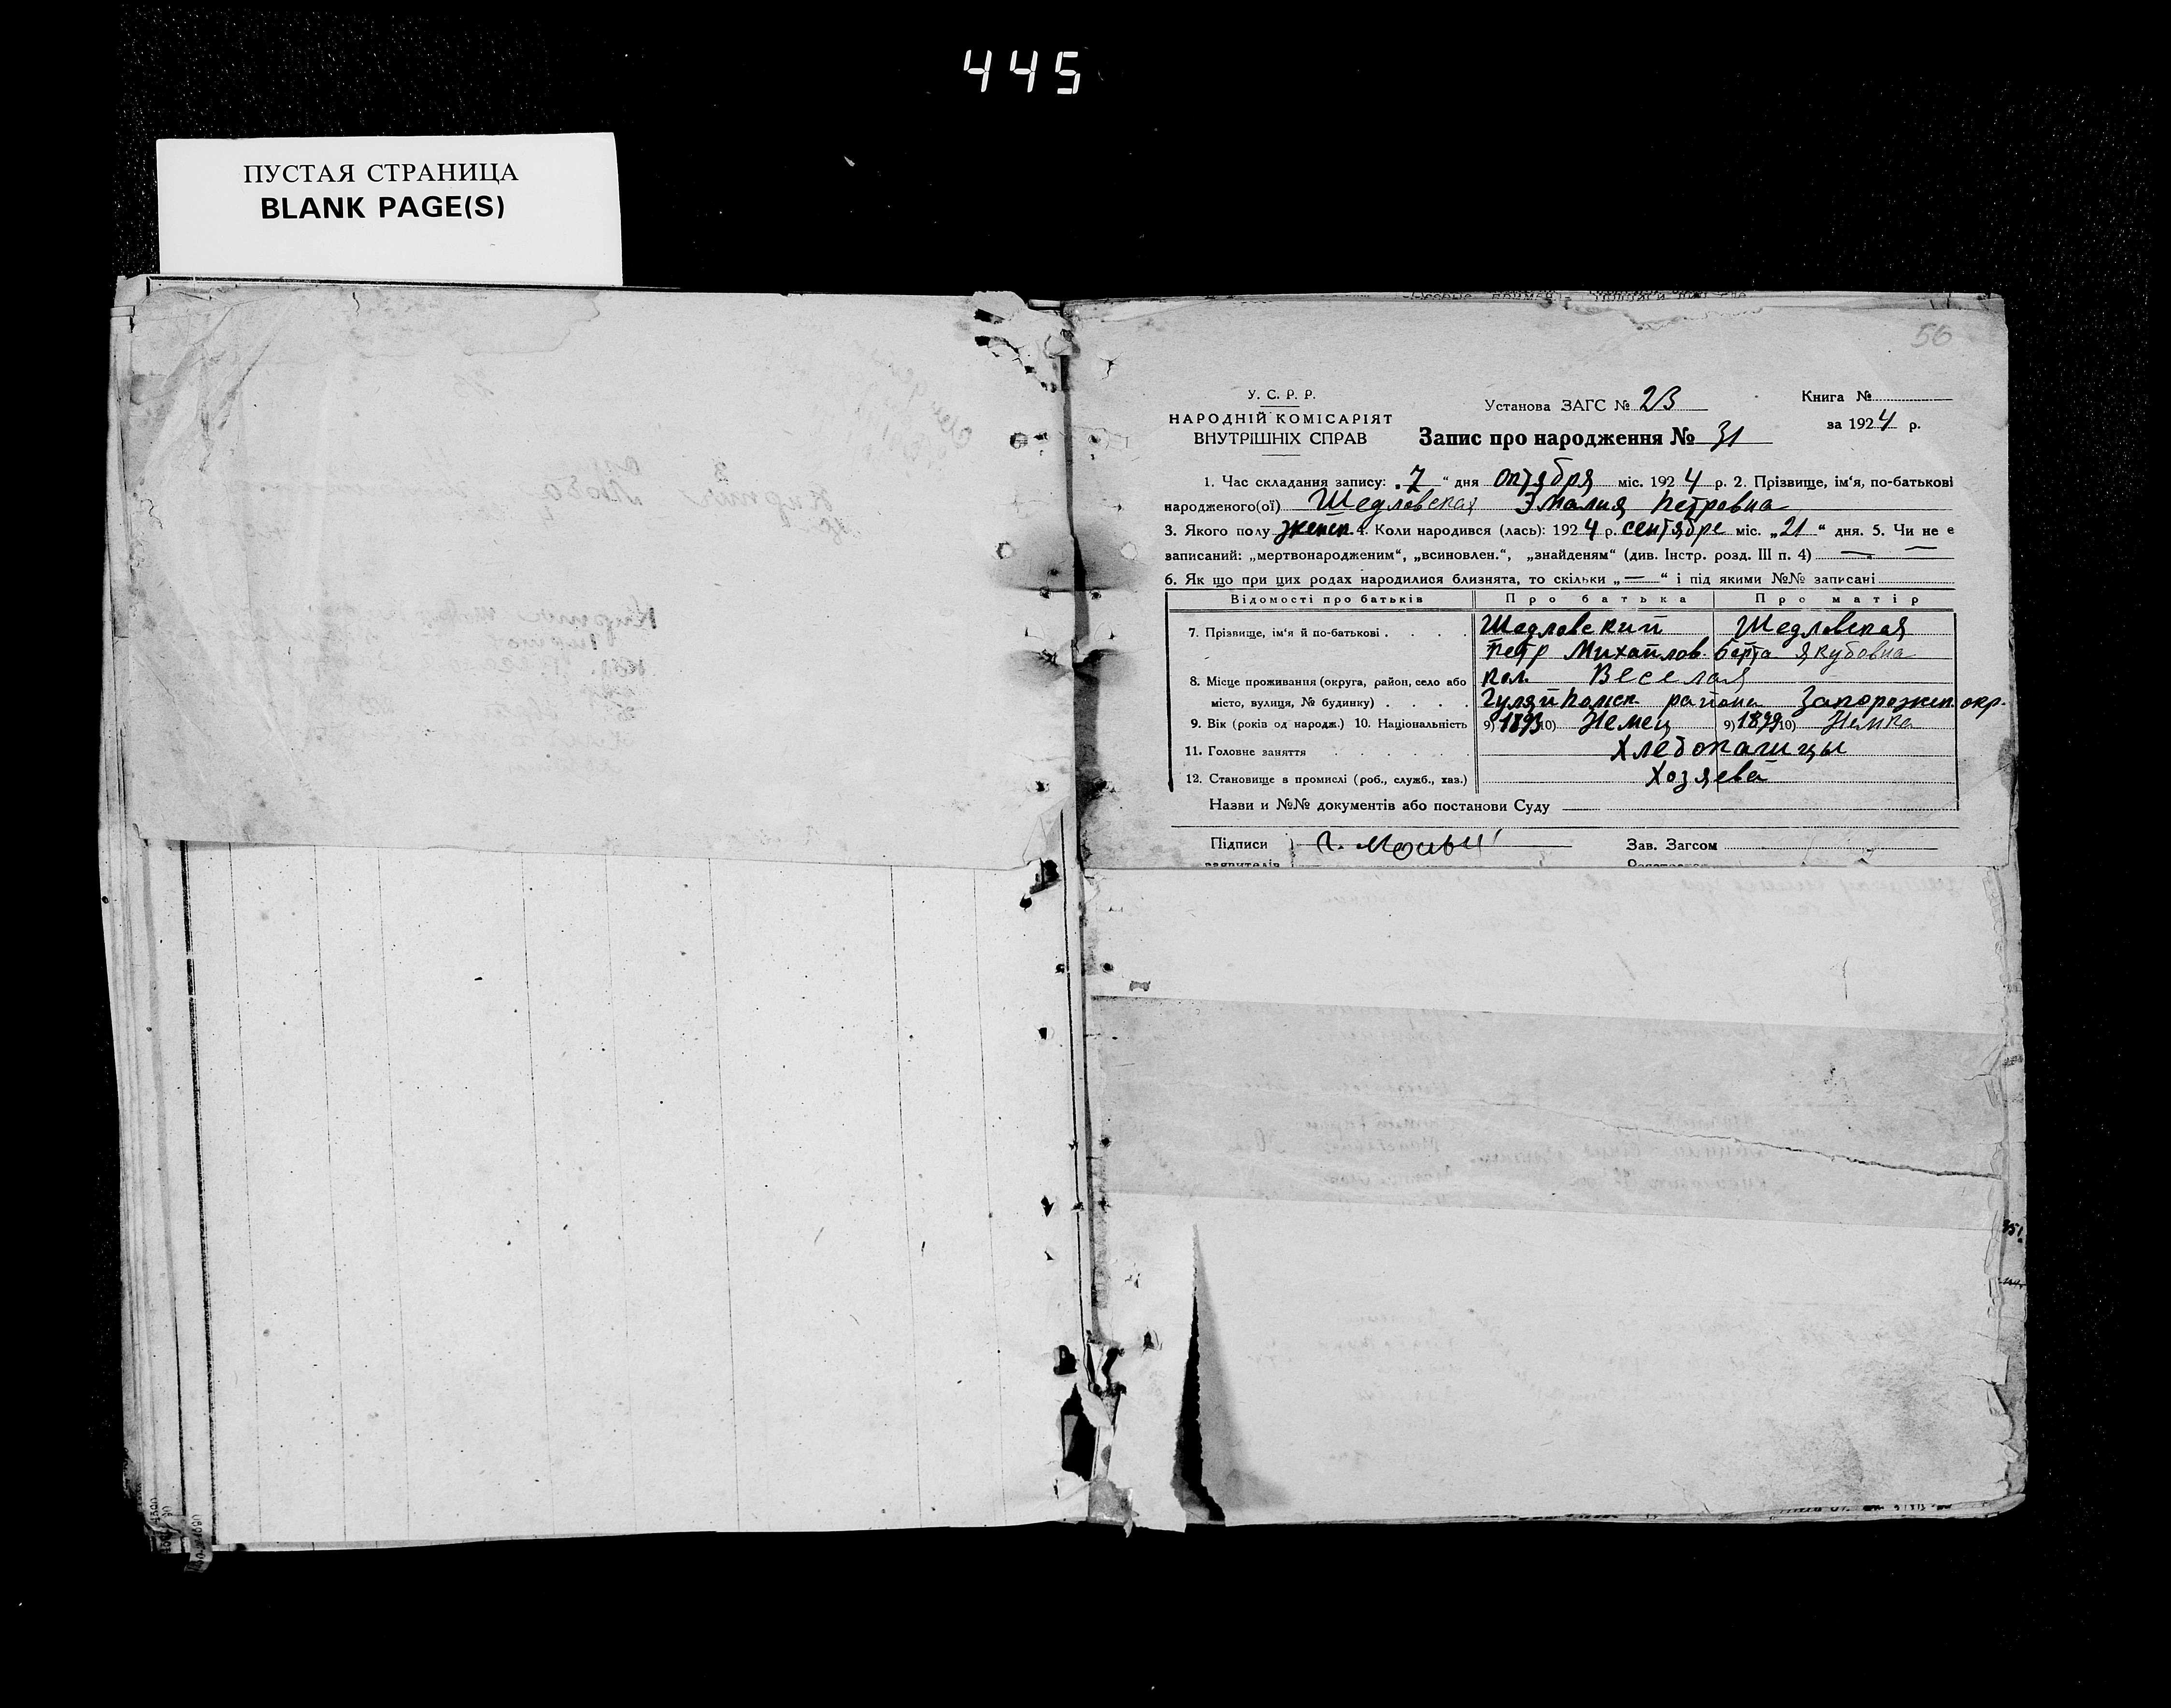 445
ПУСТАЯ СТРАНИЦА
BLANK PAGE(S)
56
У. С. Р. Р.
НАРОДНІЙ КОМІСАРІЯТ
ВНУТРІШНІХ СПРАВ
Установа ЗАГС № 23
Запис про народження № 31
Книга №
за 1924 р.
1. Час складання запису: „7“ дня октября міс. 1924 р. 2. Прізвище, ім‘я, по-батькові
народженого(ої) Шедловская Эмалия Петровна
3. Якого полу женск. 4. Коли народився (лась): 1924 р. сентябре міс. „21“ дня. 5. Чи не є
записаний: „мертвонародженим“, „всиновлен.“, „знайденям“ (див. Інстр. розд. III п. 4) — —
6. Як що при цих родах народилися близнята, то скільки „—“ і під якими №№ записані
Відомості про батьків Про батька Про матір
7. Прізвище, ім‘я й по-батькові . . . . Шедловский Шедловская
Петр Михайлов. Берта Якубовна
8. Місце проживання (округа, район, село або кол. Веселая
місто, вулиця, № будинку) . . . . Гуляйпольск района Запорожск. окр.
9. Вік (років од народж.) 10. Національність 9) 1893 10) Немец 9) 1899 10) Немка
11. Головне заняття . . . . . Хлебопашцы
12. Становище в промислі (роб., служб., хаз.) Хозяева
Назви и №№ документів або постанови Суду —
Підписи
Зав. Загсом
заявителів